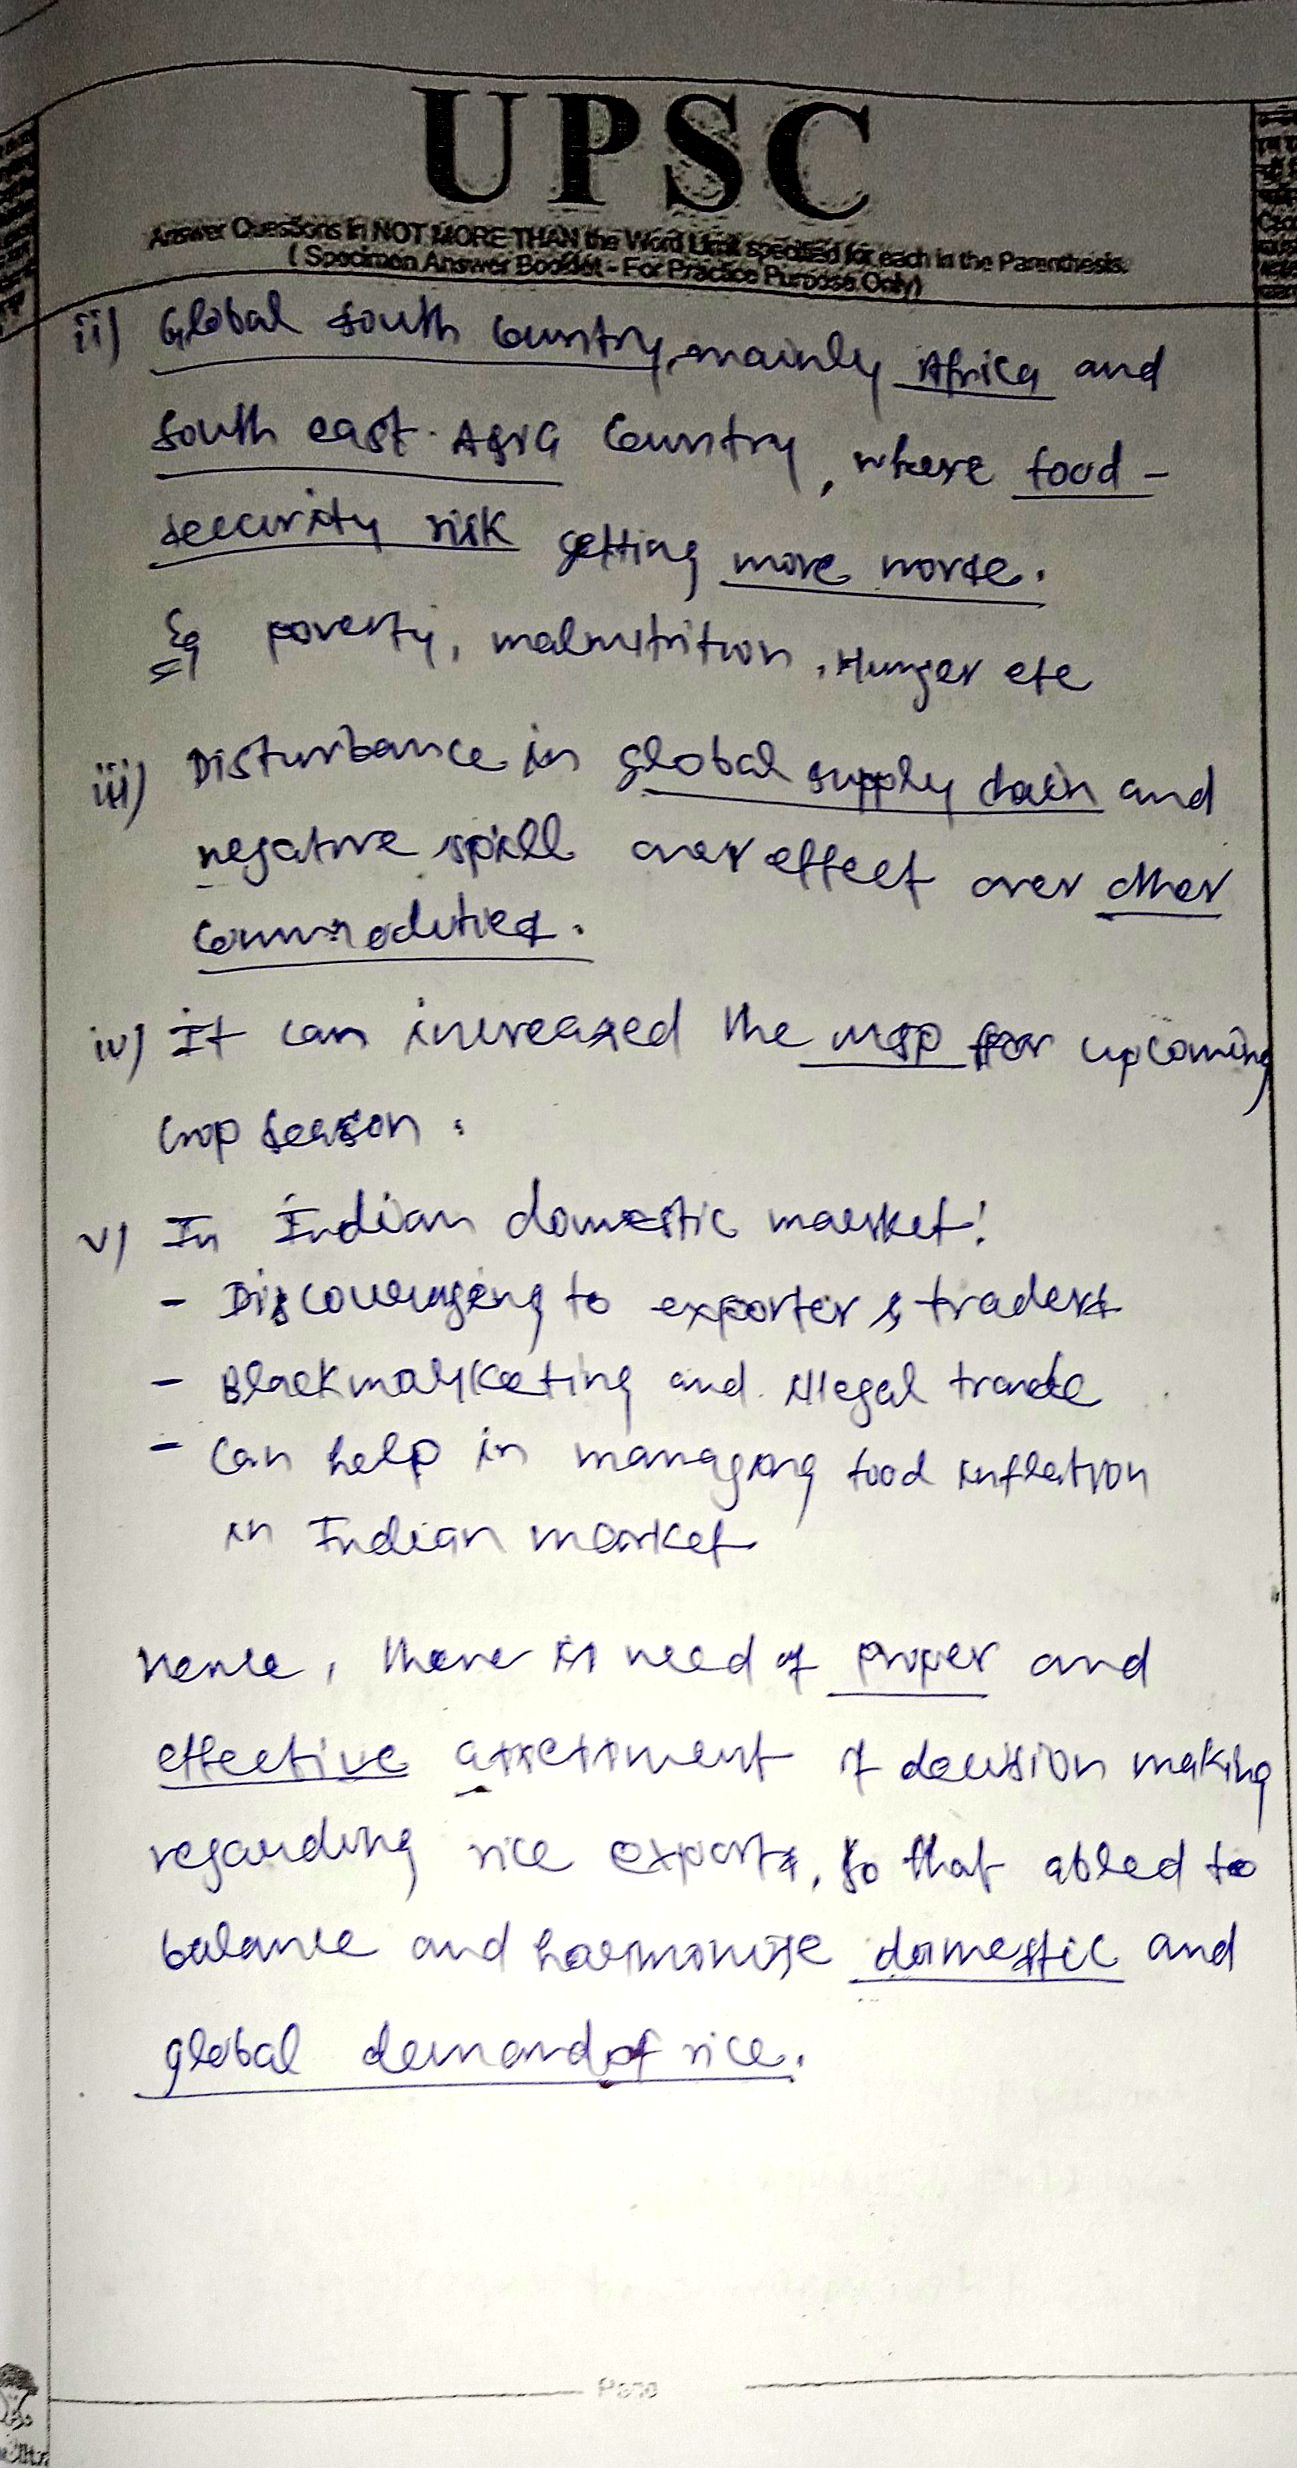 UPSC
Answer Questions in NOT MORE THAN the Word Limit specified for each in the Parenthesis.
( Specimen Answer Booklet - For Practice Purpose Only)
ii) Global south country, mainly Africa and
south east Asia Country, where food -
seccurity risk getting more worse.
Eg poverty, malnutrition, Hunger etc
iii) Disturbance in global supply chain and
negative spill over effect over other
commodities.
iv) It can increased the MSP for upcoming
crop season.
v) In Indian domestic market:
- Discouraging to exporter & traders
- Blackmarketing and illegal trade
- Can help in managing food inflation
in Indian market
Hence, there is need of proper and
effective assessment of decision making
regarding rice exports, so that abled to
balance and harmonise domestic and
global demand of rice.
Page